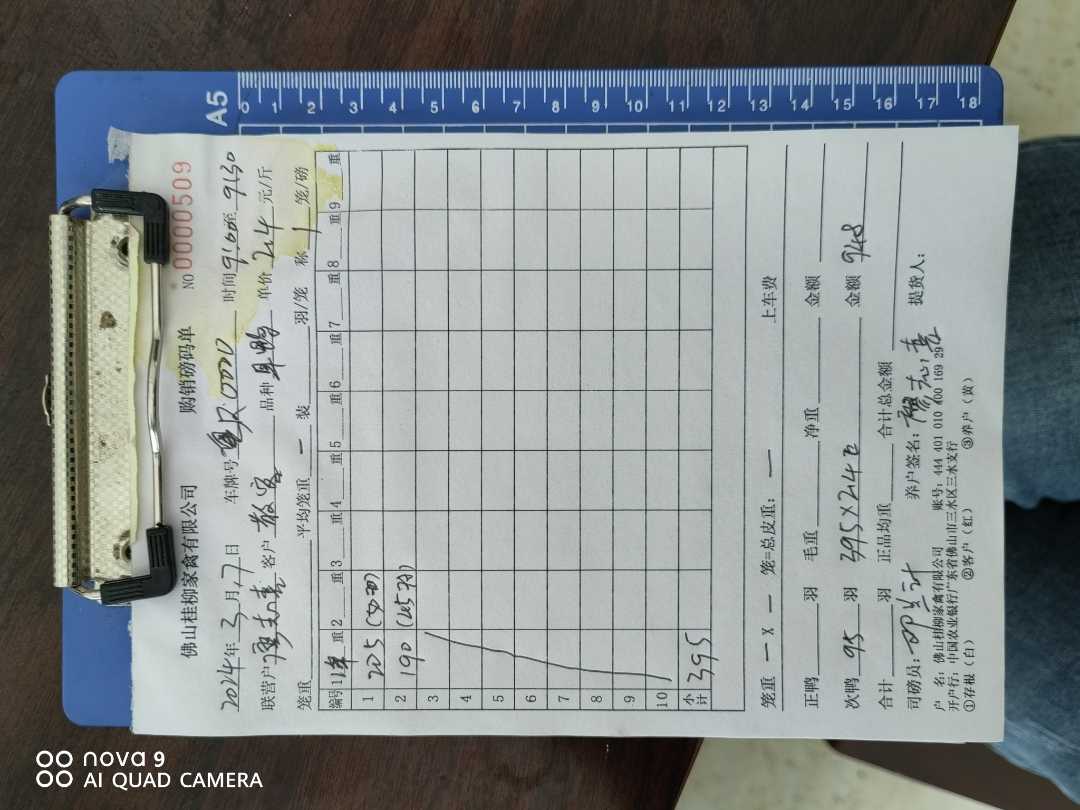 佛山桂柳家禽有限公司 购销磅码单 NO 0000509
2024年3月17日 车牌号粤R0000 时间9:00至9:30
联营户廖志喜 客户散客 品种单鸭 单价2.4元/斤
笼重 平均笼重 一 装 羽/笼 称 1 笼/磅
编号 1 单 重 2 重 3 重 4 重 5 重 6 重 7 重 8 重 9 重
1 205 (50羽)
2 190 (45羽)
3
4
5
6
7
8
9
10
小计 395
笼重 一 X 一 笼=总皮重: 一 上车费
正鸭 羽 毛重 净重 金额
次鸭 95 羽 395X2.4元 金额 948
合计 羽 正品均重 合计总金额
司磅员: 养户签名: 廖志喜 提货人:
户 名: 佛山桂柳家禽有限公司 账号: 444 401 010 400 169 294
开户行: 中国农业银行广东省佛山市三水区三水支行
①存根(白) ②客户(红) ③养户(黄)
A5
0 1 2 3 4 5 6 7 8 9 10 11 12 13 14 15 16 17 18
nova 9
AI QUAD CAMERA